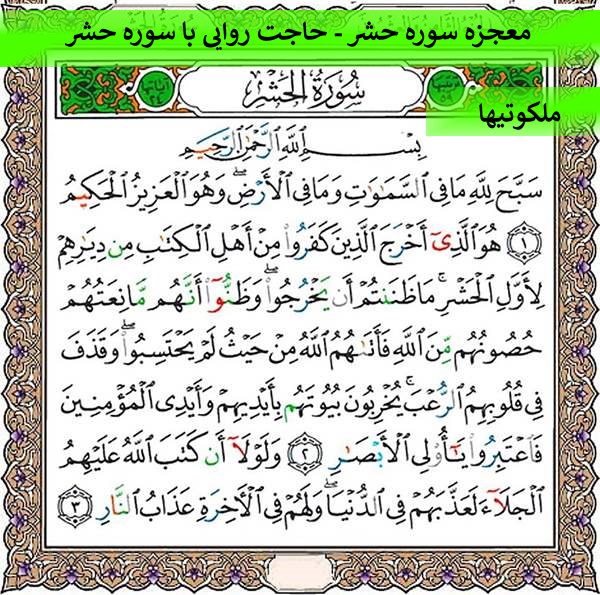 معجزه سوره حشر - حاجت روایی با سوره حشر
ملکوتیها
سُورَةُ الْحَشْرِ
بِسْمِ اللَّهِ الرَّحْمَٰنِ الرَّحِيمِ
سَبَّحَ لِلَّهِ مَا فِي السَّمَاوَاتِ وَمَا فِي الْأَرْضِ ۖ وَهُوَ الْعَزِيزُ الْحَكِيمُ
﴿١﴾ هُوَ الَّذِي أَخْرَجَ الَّذِينَ كَفَرُوا مِنْ أَهْلِ الْكِتَابِ مِن دِيَارِهِمْ
لِأَوَّلِ الْحَشْرِ ۚ مَا ظَنَنتُمْ أَن يَخْرُجُوا ۖ وَظَنُّوا أَنَّهُم مَّانِعَتُهُمْ
حُصُونُهُم مِّنَ اللَّهِ فَأَتَاهُمُ اللَّهُ مِنْ حَيْثُ لَمْ يَحْتَسِبُوا ۖ وَقَذَفَ
فِي قُلُوبِهِمُ الرُّعْبَ ۚ يُخْرِبُونَ بُيُوتَهُم بِأَيْدِيهِمْ وَأَيْدِي الْمُؤْمِنِينَ
فَاعْتَبِرُوا يَا أُولِي الْأَبْصَارِ ﴿٢﴾ وَلَوْلَا أَن كَتَبَ اللَّهُ عَلَيْهِمُ
الْجَلَاءَ لَعَذَّبَهُمْ فِي الدُّنْيَا ۖ وَلَهُمْ فِي الْآخِرَةِ عَذَابُ النَّارِ ﴿٣﴾